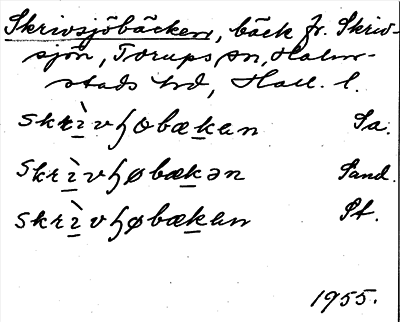 Skrivsjöbäcken, bäck fr. Skriv-
sjön, Torups sn, Halm-
stads hd, Hall. l.
skrìvɧobækan Sa.
skrìvɧøbækən Sand.
skrìvɧøbækan St.
1955.